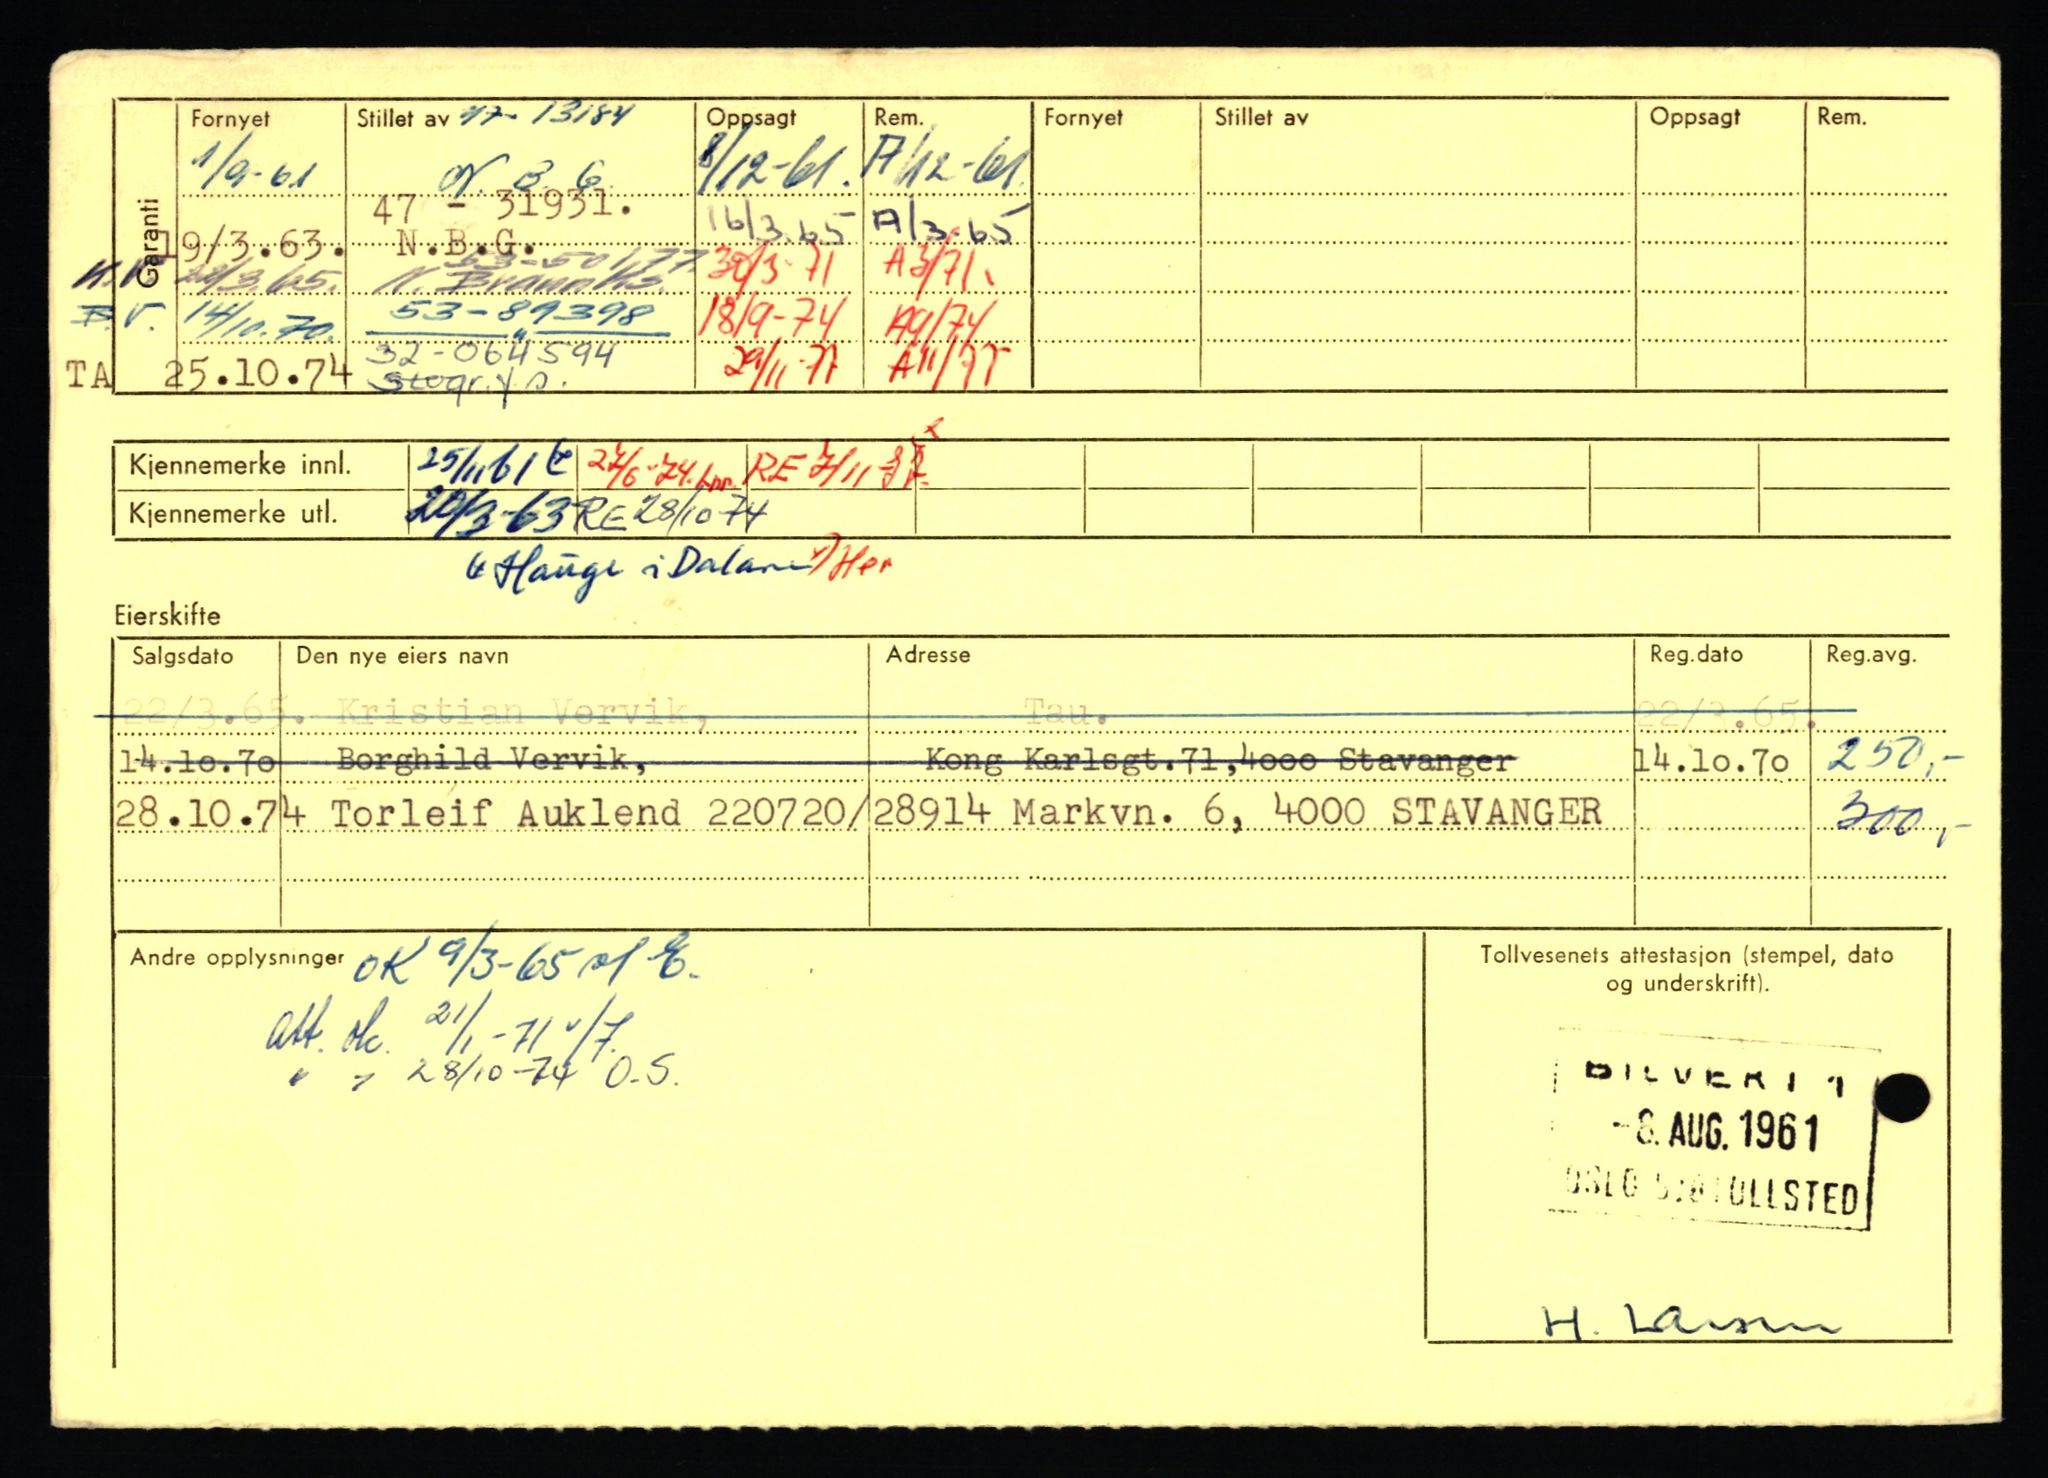 Garanti
Fornyet Stillet av 47-13184 Oppsagt Rem. Fornyet Stillet av Oppsagt Rem.
1/9-61 N. B. G. 8/12-61. A/12-61.
47 - 31931.
19/3.63. N.B.G. 16/3.65 A/3.65
53-50177.
22/3.65. N. Brann 30/3-71 A3/71.
B.V. 14/10.70. 53-89398 18/9-74 A9/74
32-064594
TA 25.10.74 Storgr.y.d. 29/11-77 A11/77
Kjennemerke innl. 25/11 61 27/6-74. RE 7/11
Kjennemerke utl. 20/3-63 RE 28/10-74
Hauge i Dalane Her
Eierskifte
Salgsdato Den nye eiers navn Adresse Reg.dato Reg.avg.
22/3.65. Kristian Vervik, Tau. 22/3.65.
14.10.70 Borghild Vervik, Kong Karlsgt.71,4000 Stavanger 14.10.70 250,-
28.10.74 Torleif Auklend 220720/28914 Markvn. 6, 4000 STAVANGER 300,-
Andre opplysninger OK 9/3-65
Att. ok. 21/1-71 v/7.
" " 28/10-74 O.S.
Tollvesenets attestasjon (stempel, dato
og underskrift).
-8. AUG. 1961
OSLO
H. Larsen